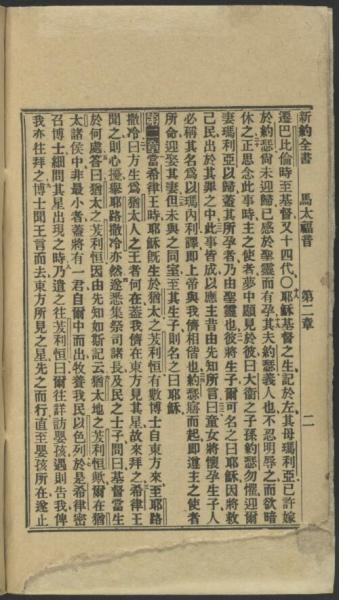 新約全書　馬太福音　第二章　二
遷巴比倫時至基督又十四代〇耶穌基督之生記於左其母瑪利亞已許嫁
於約瑟尙未迎歸已感於聖靈而有孕其夫約瑟義人也不忍明辱之而欲暗
休之正思念此事時主之使者夢中顯見於彼曰大衛之子孫約瑟勿懼迎爾
妻瑪利亞以歸蓋其所孕者乃由聖靈也彼將生子爾可名之曰耶穌因將救
己民出於其罪之中此事皆成以應主昔由先知所言曰童女將懷孕生子人
必稱其名爲以瑪內利譯即上帝與我儕相偕也約瑟寤而起即遵主之使者
所命迎娶其妻但未與之同室至其生子則名之曰耶穌
第二章當希律王時耶穌旣生於猶太之芺利恒有數博士自東方來至耶路
撒冷曰方生爲猶太人之王者何在蓋我儕在東方見其星故來拜之希律王
聞之則心擾舉耶路撒冷亦然遂悉集祭司諸長及民之士子問曰基督當生
於何處答曰猶太之芺利恒因由先知如斯記云猶太地之芺利恒歟爾在猶
太諸侯中非最小者蓋將有一君自爾中而出以牧養我民以色列於是希律密
召博士細問其星出現之時乃遣之往芺利恒曰爾往詳訪嬰孩遇則告我俾
我亦往拜之博士聞王言而去東方所見之星先之而行直至嬰孩所在遂止